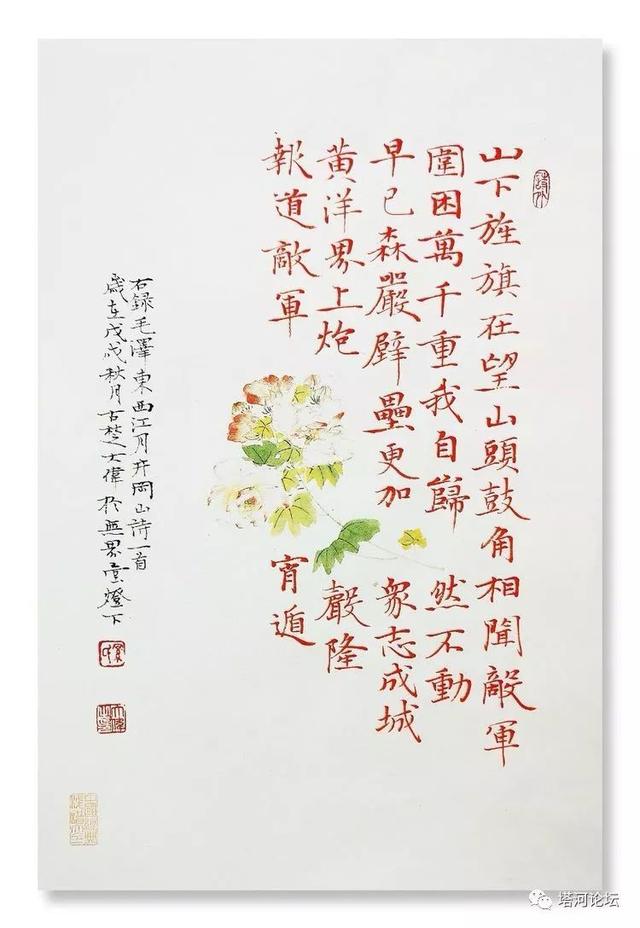 山下旌旗在望山頭鼓角相聞敵軍
圍困萬千重我自巋然不動
早已森嚴壁壘更加眾志成城
黃洋界上炮聲隆
報道敵軍宵遁
右録毛澤東西江月井岡山詩一首
歲在戊戌秋月古楚大偉於無界堂燈下
塔河论坛